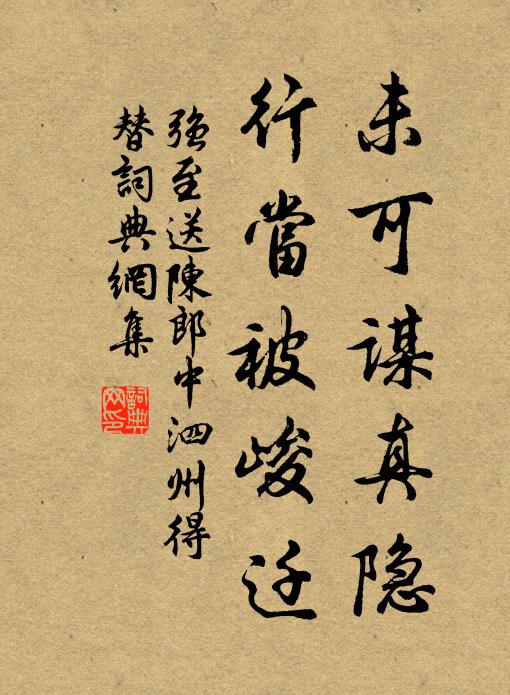 未可谋真隐
行當被峻迁
强至送陳郎中泗州得
替詞典網集
詞典网印